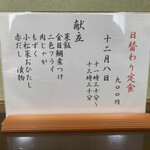 日替わり定食
九〇〇円
十二月八日
十一時三十分〜
十三時三十分
献立
菜飯
金目鯛煮つけ
二色フライ
肉じゃが
もずく
小松菜おひたし
赤だし 漬物